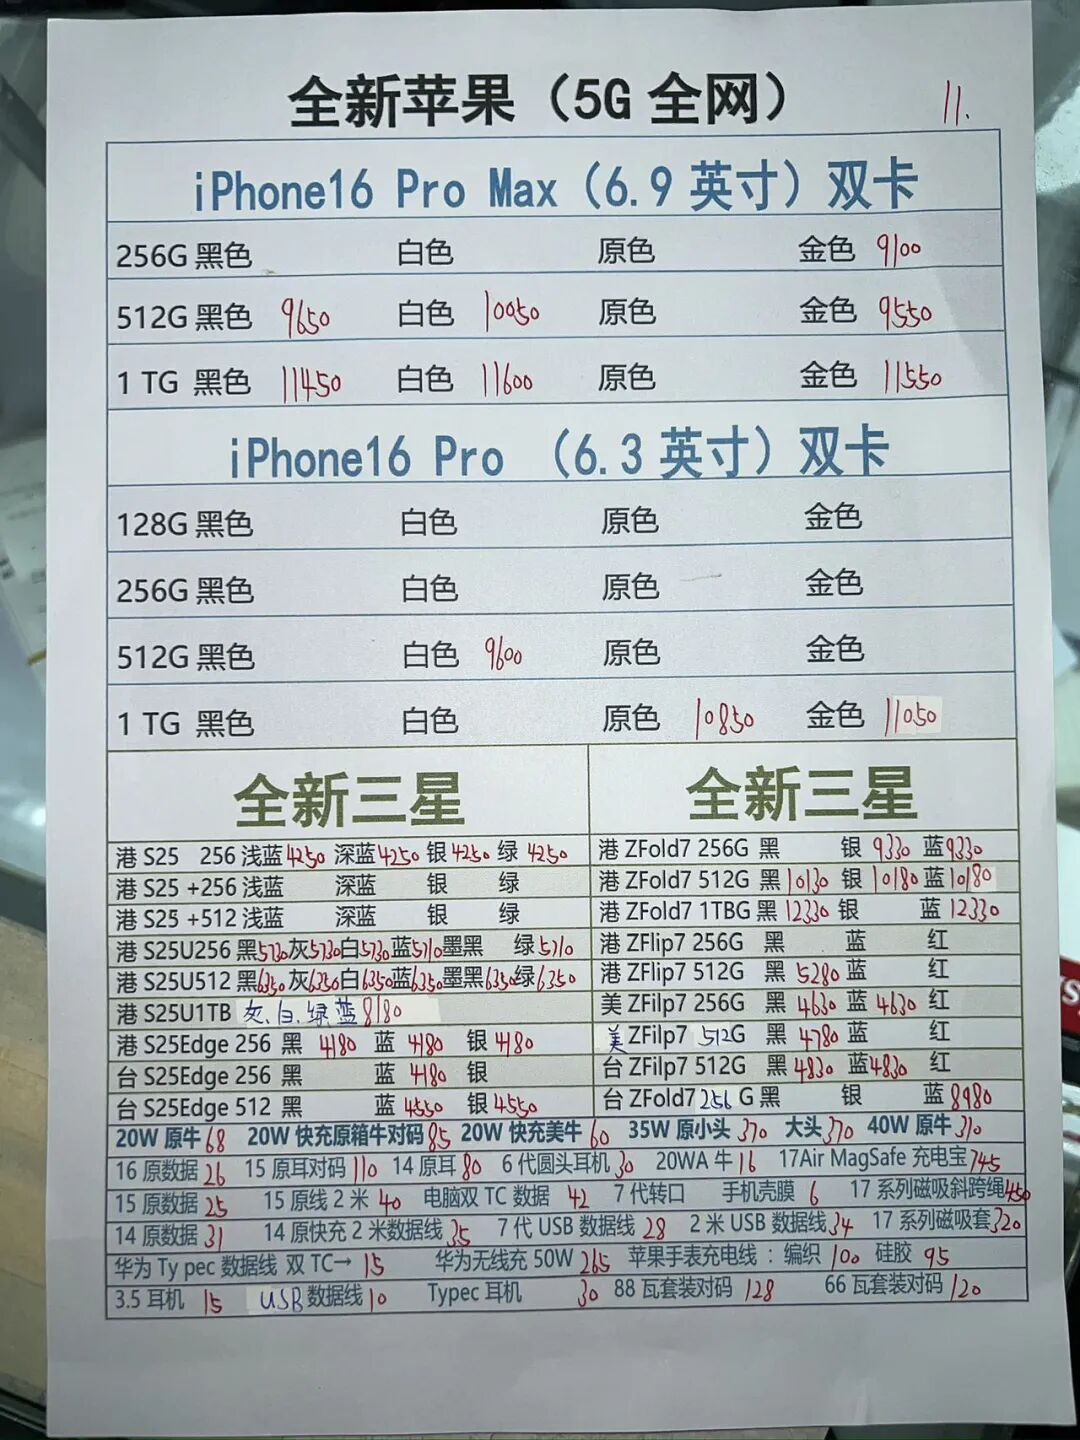 全新苹果（5G 全网） 11.
iPhone16 Pro Max（6.9 英寸）双卡
256G 黑色 白色 原色 金色 9100
512G 黑色 9650 白色 10050 原色 金色 9550
1 TG 黑色 11450 白色 11600 原色 金色 11550
iPhone16 Pro （6.3 英寸）双卡
128G 黑色 白色 原色 金色
256G 黑色 白色 原色 金色
512G 黑色 白色 9600 原色 金色
1 TG 黑色 白色 原色 10850 金色 11050
全新三星
港 S25 256 浅蓝 4250 深蓝 4250 银 4250 绿 4250
港 S25 +256 浅蓝 深蓝 银 绿
港 S25 +512 浅蓝 深蓝 银 绿
港 S25U256 黑 5730 灰 5730 白 5730 蓝 5710 墨黑 绿 5710
港 S25U512 黑 6350 灰 6350 白 6350 蓝 6350 墨黑 6350 绿 6350
港 S25U1TB 灰、白、绿 蓝 8180
港 S25Edge 256 黑 4180 蓝 4180 银 4180
台 S25Edge 256 黑 蓝 4180 银
台 S25Edge 512 黑 蓝 4550 银 4550
全新三星
港 ZFold7 256G 黑 银 9330 蓝 9330
港 ZFold7 512G 黑 10130 银 10180 蓝 10180
港 ZFold7 1TBG 黑 12330 银 蓝 12330
港 ZFlip7 256G 黑 蓝 红
港 ZFlip7 512G 黑 5280 蓝 红
美 ZFilp7 256G 黑 4630 蓝 4630 红
美 ZFilp7 512G 黑 4780 蓝 红
台 ZFilp7 512G 黑 4830 蓝 4830 红
台 ZFold7 256 G 黑 银 蓝 8980
20W 原牛 68 20W 快充原箱牛对码 85 20W 快充美牛 60 35W 原小头 370 大头 370 40W 原牛 310
16 原数据 26 15 原耳对码 110 14 原耳 80 6 代圆头耳机 30 20WA 牛 16 17Air MagSafe 充电宝 745
15 原数据 25 15 原线 2 米 40 电脑双 TC 数据 42 7 代转口 手机壳膜 6 17 系列磁吸斜跨绳 450
14 原数据 31 14 原快充 2 米数据线 35 7 代 USB 数据线 28 2 米 USB 数据线 34 17 系列磁吸套 320
华为 Ty pec 数据线 双 TC→ 15 华为无线充 50W 265 苹果手表充电线 ：编织 100 硅胶 95
3.5 耳机 15 USB 数据线 10 Typec 耳机 30 88 瓦套装对码 128 66 瓦套装对码 120